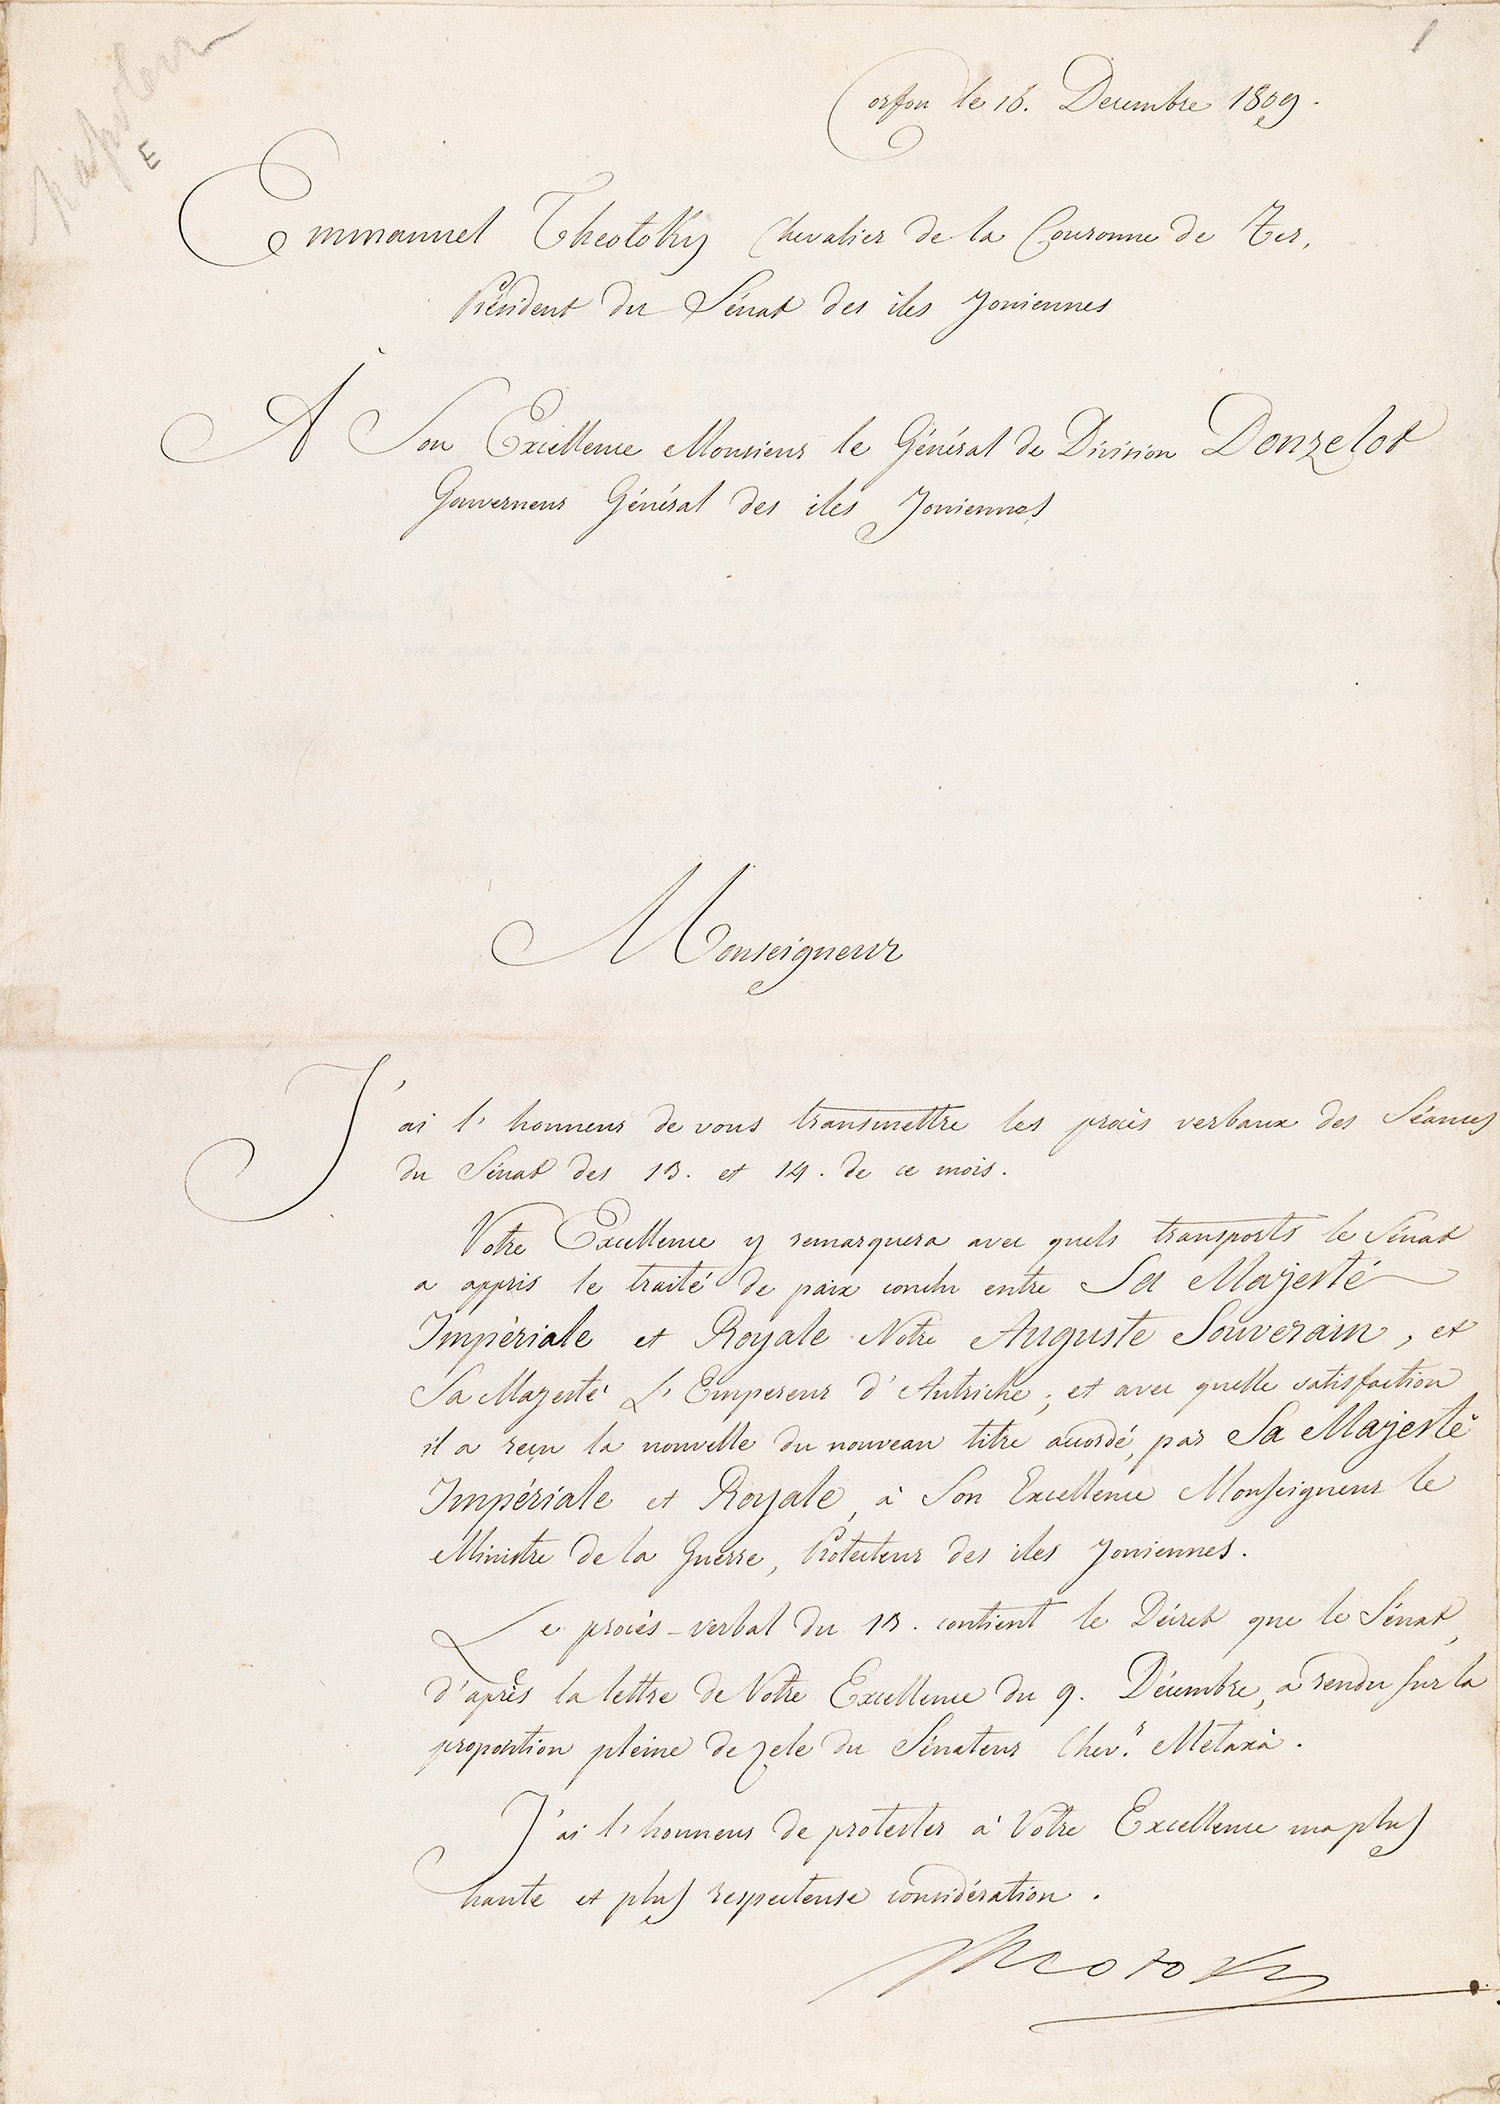 Napoleon
E
1
Corfou le 16. Decembre 1809.
Emmanuel Theotoky Chevalier de la Couronne de Fer,
Président du Sénat des iles Joniennes
A Son Excellence Monsieur le Général de Division Donzelot
Gouverneur Général des iles Joniennes
Monseigneur
J'ai l'honneur de vous transmettre les procès verbaux des Séances
du Sénat des 13. et 14. de ce mois.
Votre Excellence y remarquera avec quels transports le Sénat
a appris le traité de paix conclu entre Sa Majesté
Impériale et Royale Notre Auguste Souverain, et
Sa Majesté L'Empereur d'Autriche; et avec quelle satisfaction
il a reçu la nouvelle du nouveau titre accordé, par Sa Majesté
Impériale et Royale, à Son Excellence Monseigneur le
Ministre de la Guerre, Protecteur des iles Joniennes.
Le procès-verbal du 13. contient le Décret que le Sénat,
d'après la lettre de Votre Excellence du 9. Décembre, a rendu sur la
proposition pleine de zele du Sénateur Chev.r Metaxà.
J'ai l'honneur de protester à Votre Excellence ma plus
haute et plus respecteuse considération.
Theotoky